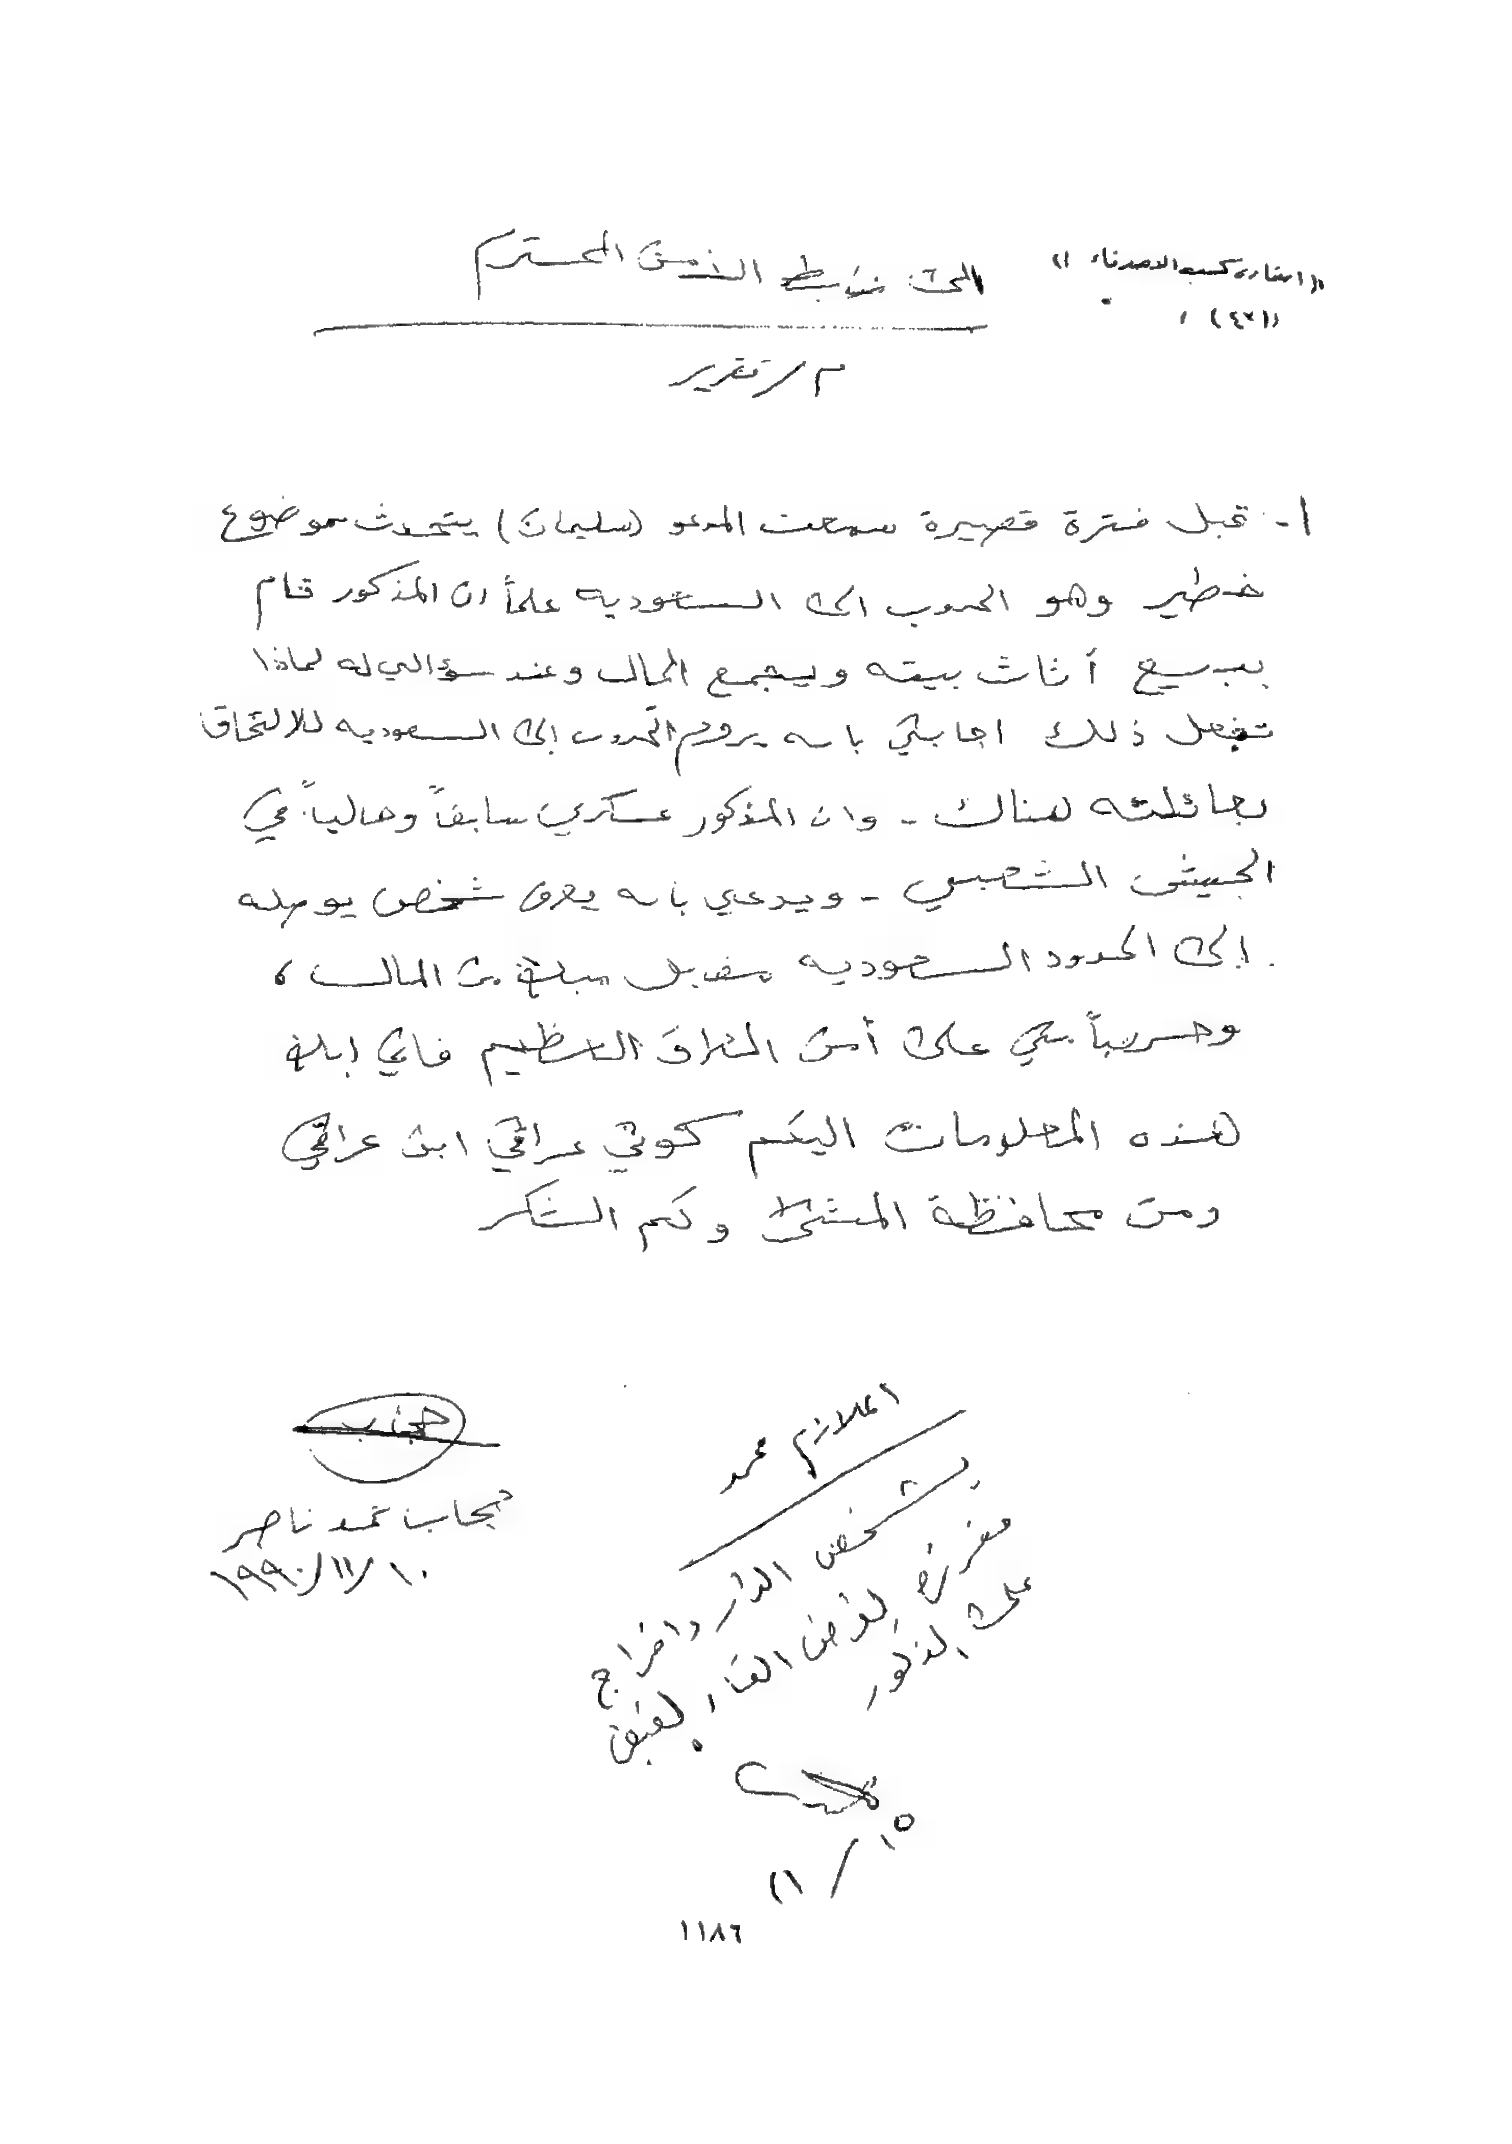 استمارة كسب الاصدقاء
(٤٢١)
الى ضابط الأمن المحترم
م/ تقرير
١- قبل فترة قصيرة سمعت المدعو (سليمان) يتحدث بموضوع
خطير وهو الهروب الى السعوديه علماً ان المذكور قام
ببيع أثاث بيته ويجمع المال وعند سؤالي له لماذا
تفعل ذلك اجابني بانه يروم الهروب إلى السعوديه للالتحاق
بعائلته هناك - وان المذكور عسكري سابقاً وحالياً في
الجيش الشعبي - ويدعي بانه يعرف شخص يوصله
إلى الحدود السعوديه مقابل مبلغ من المال ،
وحرصاً مني على أمن العراق العظيم فاني ابلغ
هذه المعلومات اليكم كوني عراقي ابن عراقي
ومن محافظة المثنى ولكم الشكر
حجاب محمد ناصر
١٠/١١/١٩٩٠
الملازم محمد
يشخص الدار واخراج
مفرزة لغرض القاء القبض
على المذكور
١٥/١١
١١٨٦